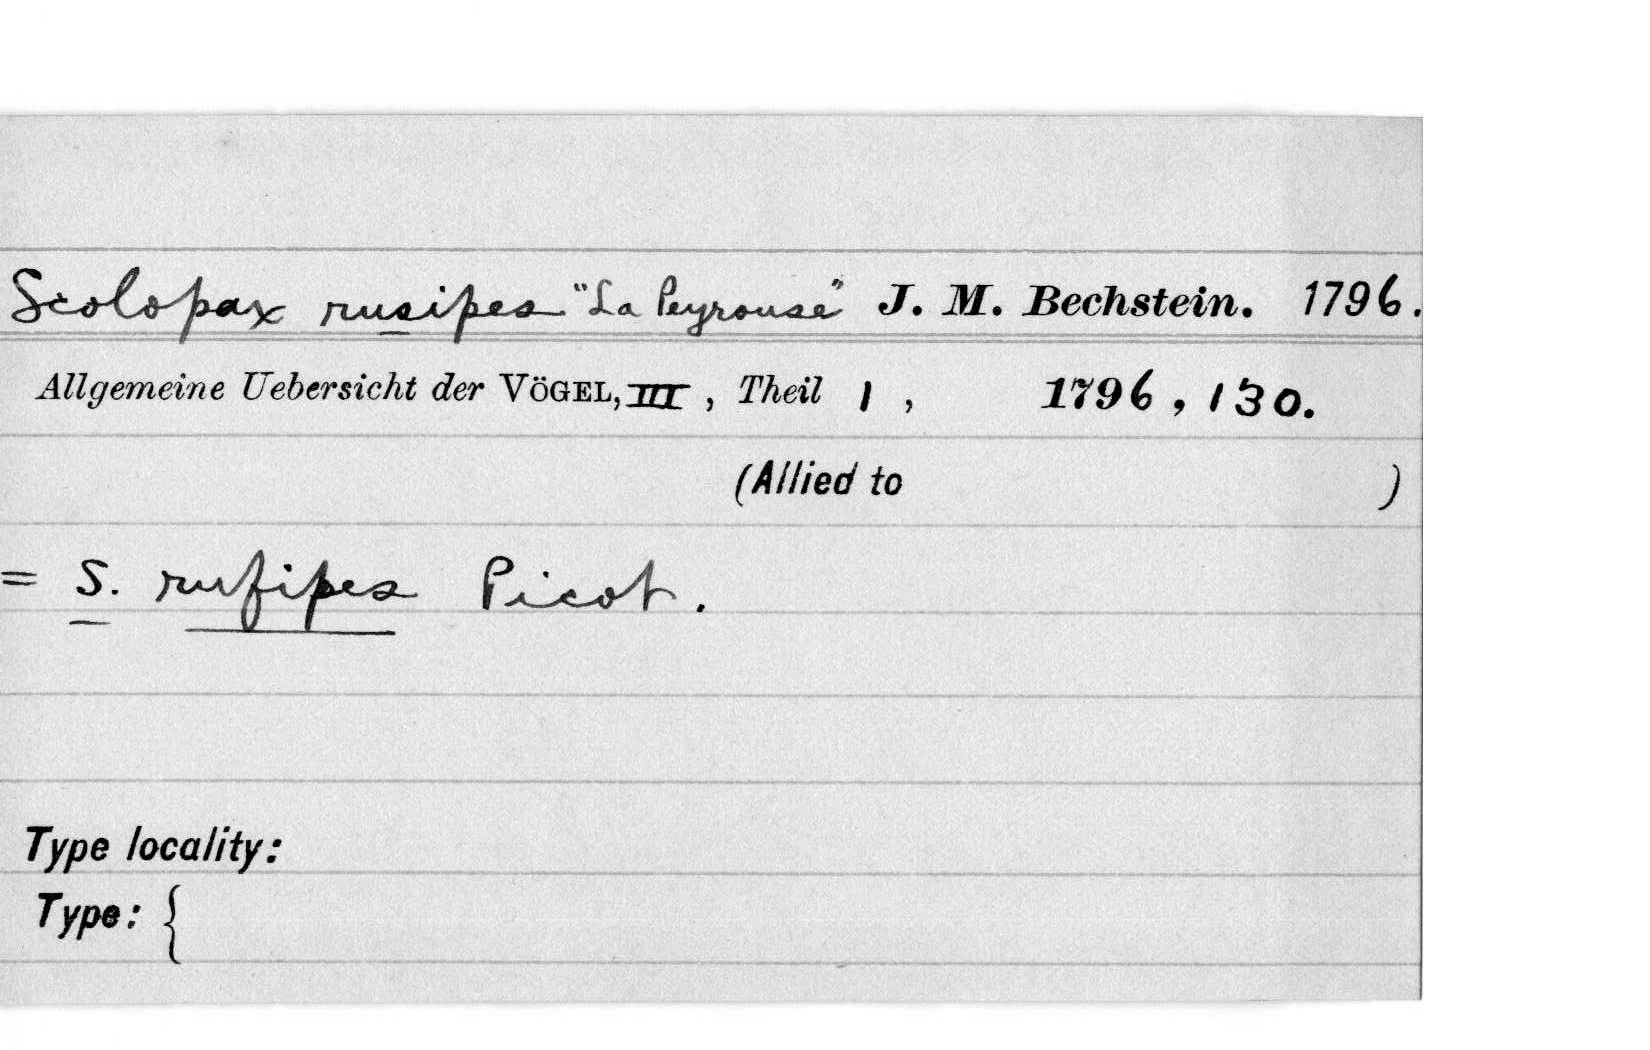 Scolopax rusipes "La Peyrouse" J. M. Bechstein. 1796.
Allgemeine Uebersicht der VÖGEL, III, Theil 1, 1796, 130.
(Allied to )
= S. rufipes Picot.
Type locality:
Type: {